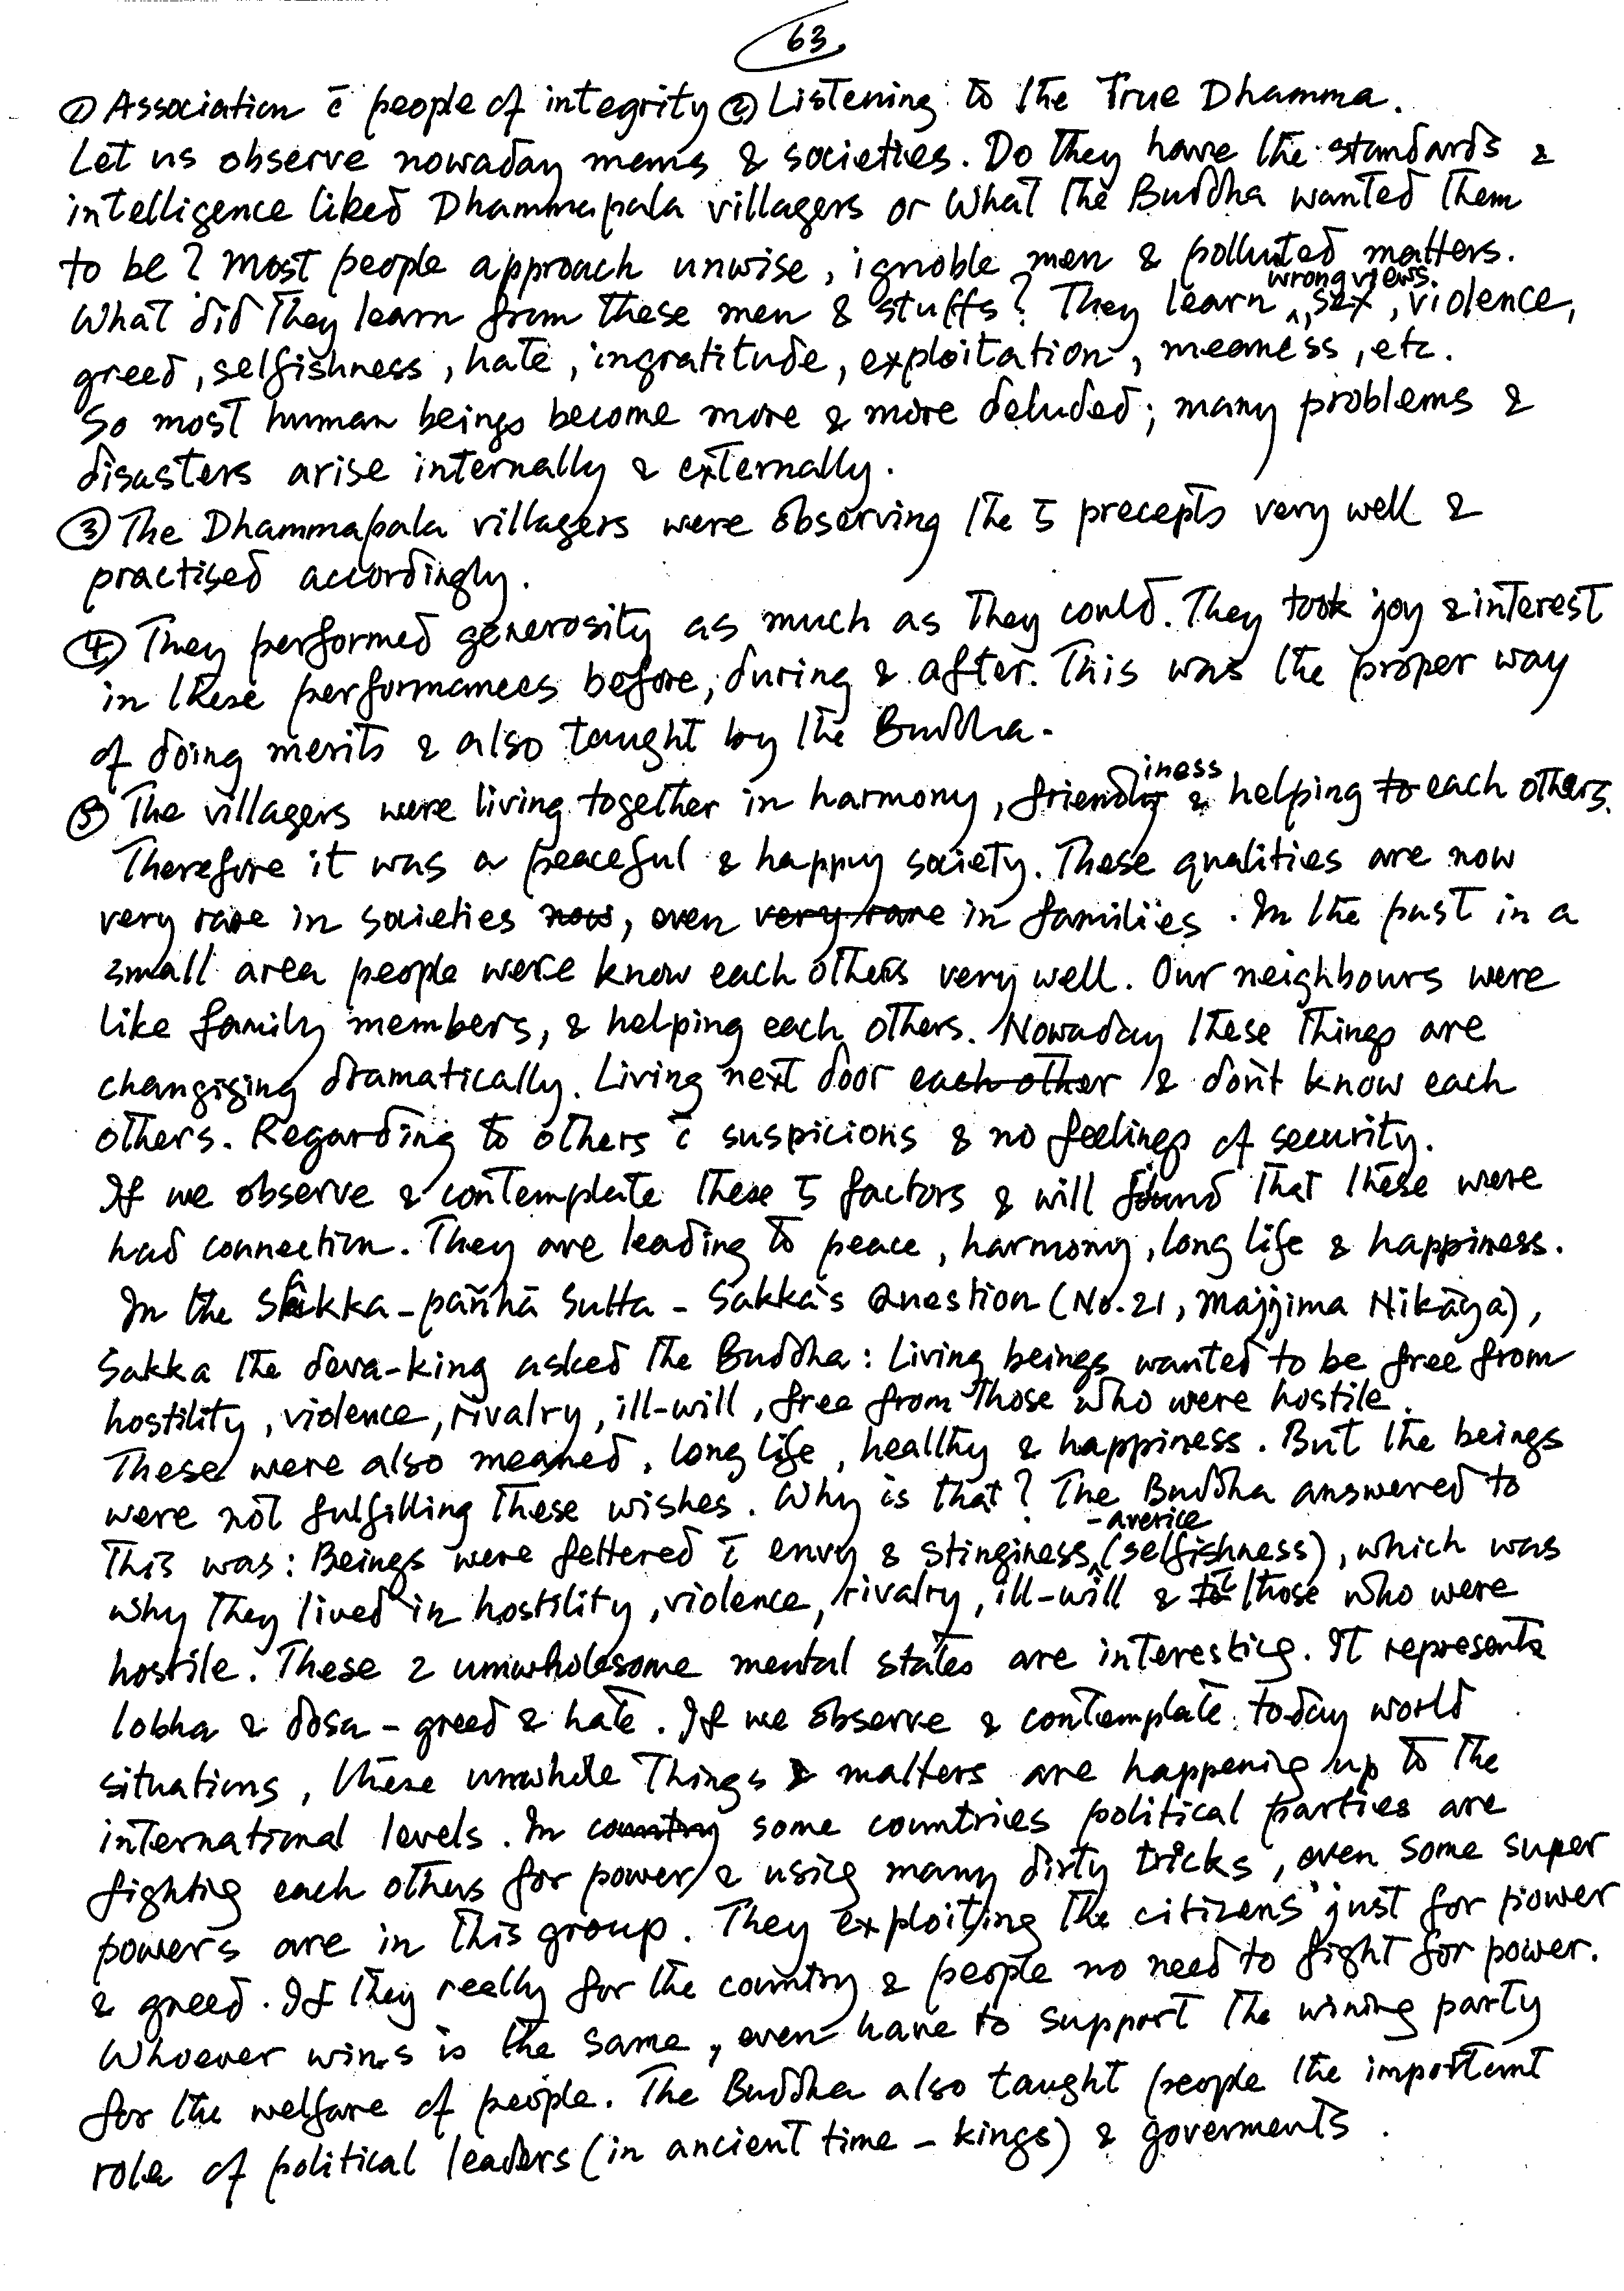 63
① Association c̄ people of integrity ② Listening to the True Dhamma.
Let us observe nowaday mems & societies. Do they have the standards &
intelligence liked Dhammapala villagers or what the Buddha wanted them
to be? Most people approach unwise, ignoble men & polluted matters.
What did they learn from these men & stuffs? They learn wrong views, sex, violence,
greed, selfishness, hate, ingratitude, exploitation, meamess, etc.
So most human beings become more & more deluded; many problems &
disasters arise internally & externally.
③ The Dhammapala villagers were observing the 5 precepts very well &
practised accordingly.
④ They performed generosity as much as they could. They took joy & interest
in these performances before, during & after. This was the proper way
of doing merits & also taught by the Buddha.
⑤ The villagers were living together in harmony, friendliness & helping to each others.
Therefore it was a peaceful & happy society. These qualities are now
very rare in societies now, even very rare in families. In the past in a
small area people were know each others very well. Our neighbours were
like family members, & helping each others. Nowaday these things are
changiging dramatically. Living next door each other & don't know each
others. Regarding to others c̄ suspicions & no feelings of security.
If we observe & contemplate these 5 factors & will found that these were
had connection. They are leading to peace, harmony, long life & happiness.
In the Sakka-pañhā Sutta - Sakka's Question (No.21, Majjima Nikāya),
Sakka the deva-king asked the Buddha: Living beings wanted to be free from
hostility, violence, rivalry, ill-will, free from those who were hostile.
These were also meaned, long life, healthy & happiness. But the beings
were not fulfilling these wishes. Why is that? The Buddha answered to
this was: Beings were fettered c̄ envy & stinginess - averice (selfishness), which was
why they lived in hostility, violence, rivalry, ill-will & c̄ those who were
hostile. These 2 unwholesome mental states are interesting. It represents
lobha & dosa - greed & hate. If we observe & contemplate today world
situations, these unwhole things & matters are happening up to the
international levels. In country some countries political parties are
fighting each others for power & using many dirty tricks, even some super
powers are in this group. They exploiting the citizens just for power
& greed. If they really for the country & people no need to fight for power.
Whoever wins is the same, even have to support the wining party
for the welfare of people. The Buddha also taught people the important
role of political leaders (in ancient time - kings) & goverments.